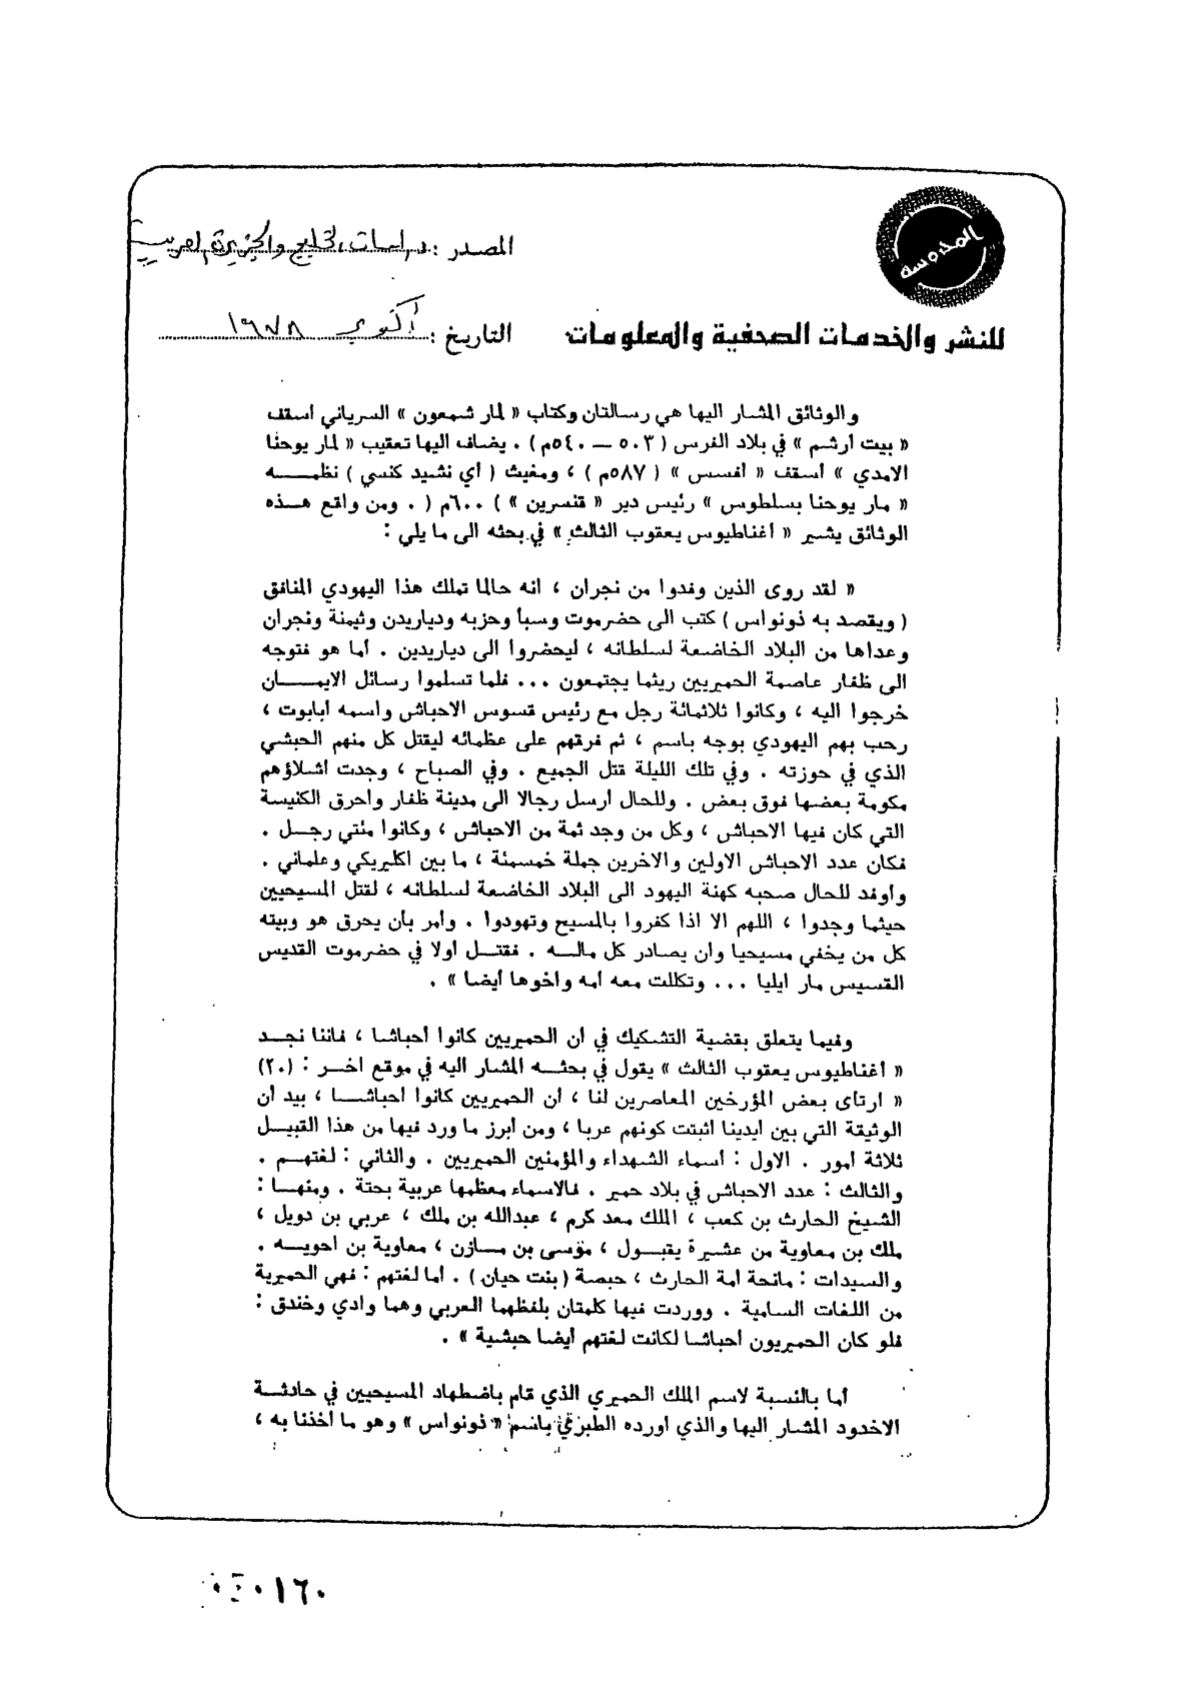 المحروسة
المصدر : دراسات الخليج والجزيرة العربية
للنشر والخدمات الصحفية والمعلومات
التاريخ : أكتوبر ١٩٧٨
والوثائق المشار اليها هي رسالتان وكتاب « لمار شمعون » السرياني أسقف
« بيت أرشم » في بلاد الفرس ( ٥٠٣ — ٥٤٠م ) . يضاف اليها تعقيب « لمار يوحنا
الامدي » أسقف « أفسس » ( ٥٨٧م ) ، ومغيث ( أي نشيد كنسي ) نظمـــه
« مار يوحنا بسلطوس » رئيس دير « قنسرين » ) ٦٠٠م ( . ومن واقع هــذه
الوثائق يشير « أغناطيوس يعقوب الثالث » في بحثه الى ما يلي :
« لقد روى الذين وفدوا من نجران ، انه حالما تملك هذا اليهودي المنافق
( ويقصد به ذونواس ) كتب الى حضرموت وسبأ وحزبه ودياريدن وثيمنة ونجران
وعداها من البلاد الخاضعة لسلطانه ، ليحضروا الى دياريدين . أما هو فتوجه
الى ظفار عاصمة الحميريين ريثما يجتمعون ... فلما تسلموا رسائل الايمـــان
خرجوا اليه ، وكانوا ثلاثمائة رجل مع رئيس قسوس الاحباش واسمه أبابوت ،
رحب بهم اليهودي بوجه باسم ، ثم فرقهم على عظمائه ليقتل كل منهم الحبشي
الذي في حوزته . وفي تلك الليلة قتل الجميع . وفي الصباح ، وجدت أشلاؤهم
مكومة بعضها فوق بعض . وللحال أرسل رجالا الى مدينة ظفار واحرق الكنيسة
التي كان فيها الاحباش ، وكل من وجد ثمة من الاحباش ، وكانوا مئتي رجــل .
فكان عدد الاحباش الاولين والاخرين جملة خمسمئة ، ما بين اكليريكي وعلماني .
وأوفد للحال صحبه كهنة اليهود الى البلاد الخاضعة لسلطانه ، لقتل المسيحيين
حيثما وجدوا ، اللهم الا اذا كفروا بالمسيح وتهودوا . وأمر بأن يحرق هو وبيته
كل من يخفي مسيحيا وأن يصادر كل مالـــه . فقتــل أولا في حضرموت القديس
القسيس مار ايليا ... وتكللت معه أمه واخوها أيضا » .
وفيما يتعلق بقضية التشكيك في أن الحميريين كانوا أحباشا ، فاننا نجــد
« أغناطيوس يعقوب الثالث » يقول في بحثـــه المشار اليه في موقع اخــر : (٢٠)
« ارتأى بعض المؤرخين المعاصرين لنا ، أن الحميريين كانوا أحباشـــا ، بيد أن
الوثيقة التي بين أيدينا أثبتت كونهم عربا ، ومن أبرز ما ورد فيها من هذا القبيــل
ثلاثة أمور . الاول : أسماء الشهداء والمؤمنين الحميريين . والثاني : لغتهــم .
والثالث : عدد الاحباش في بلاد حمير . فالاسماء معظمها عربية بحتة . ومنهــا :
الشيخ الحارث بن كعب ، الملك معد كرم ، عبدالله بن ملك ، عربي بن دويل ،
ملك بن معاوية من عشيرة يقبــول ، مؤسى بن مــازن ، معاوية بن أحويــه .
والسيدات : مانحة أمة الحارث ، حبصة ( بنت حيان ) . أما لغتهم : فهي الحميرية
من اللغات السامية . ووردت فيها كلمتان بلفظهما العربي وهما وادي وخندق :
فلو كان الحميريون أحباشا لكانت لغتهم أيضا حبشية » .
أما بالنسبة لاسم الملك الحميري الذي قام باضطهاد المسيحيين في حادثــة
الاخدود المشار اليها والذي أورده الطبري باسم « ذونواس » وهو ما أخذنا به ،